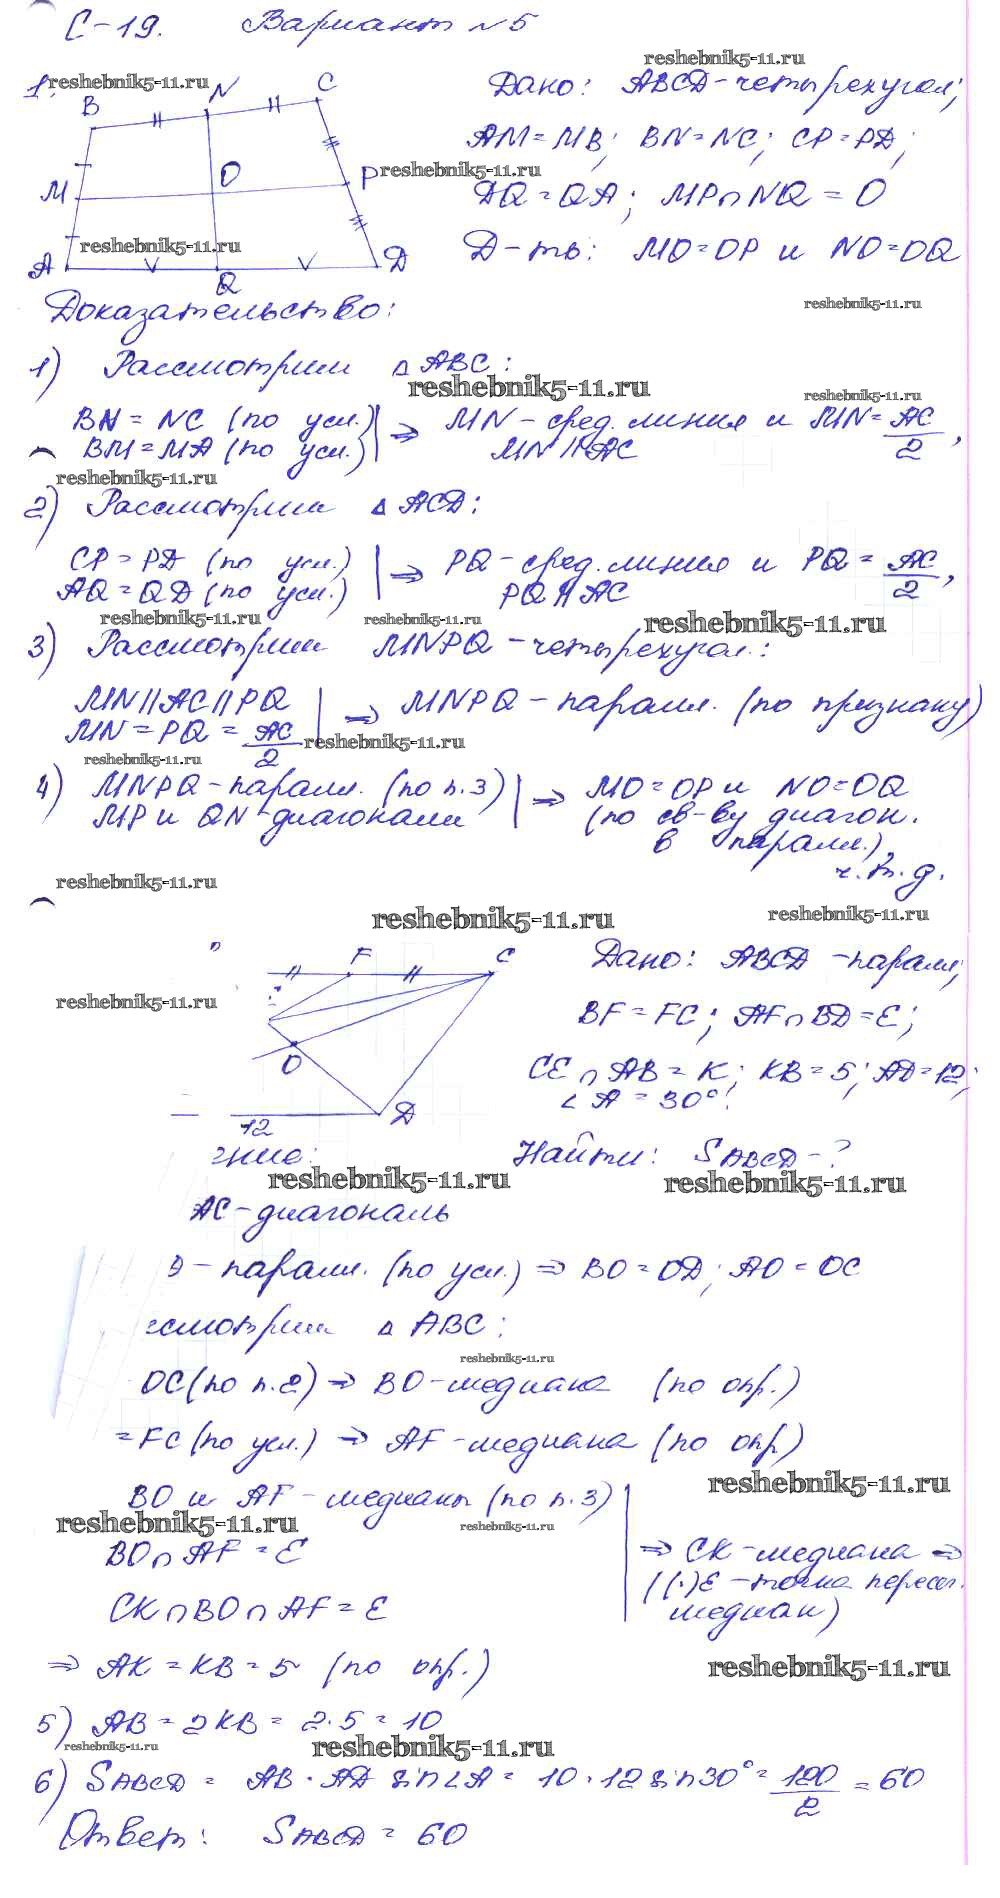 С-19. Вариант №5
1.
B N C
M O P
A Q D
Дано: ABCD-четырехугол;
AM=MB; BN=NC; CP=PD;
DQ=QA; MP∩NQ=O
Д-ть: MO=OP и NO=OQ
Доказательство:
1) Рассмотрим △ABC:
BN=NC (по усл.)
BM=MA (по усл.)
⇒ MN-сред.линия и MN=AC/2,
MN∥AC
2) Рассмотрим △ACD:
CP=PD (по усл.)
AQ=QD (по усл.)
⇒ PQ-сред.линия и PQ=AC/2,
PQ∥AC
3) Рассмотрим MNPQ-четырехугол.:
MN∥AC∥PQ
MN=PQ=AC/2
⇒ MNPQ-паралл. (по признаку)
4) MNPQ-паралл. (по п.3)
MP и QN-диагонали
⇒ MO=OP и NO=OQ
(по св-ву диагон.
в паралл.),
ч.т.д.
F C
O
D
12
Дано: ABCD-паралл;
BF=FC; AF∩BD=E;
CE∩AB=K; KB=5; AD=12;
∠A=30°!
Найти: SABCD-?
ение:
AC-диагональ
D-паралл. (по усл.) ⇒ BO=OD; AO=OC
ссмотрим △ABC:
OC (по п.2) ⇒ BO-медиана (по опр.)
=FC (по усл.) ⇒ AF-медиана (по опр)
BO и AF-медианы (по п.3)
BO∩AF=E
CK∩BO∩AF=E
⇒ CK-медиана ⇒
((·)E-точка пересеч.
медиан)
⇒ AK=KB=5 (по опр.)
5) AB=2KB=2·5=10
6) SABCD = AB·AD sin∠A=10·12sin30°=120/2=60
Ответ: SABCD=60
reshebnik5-11.ru